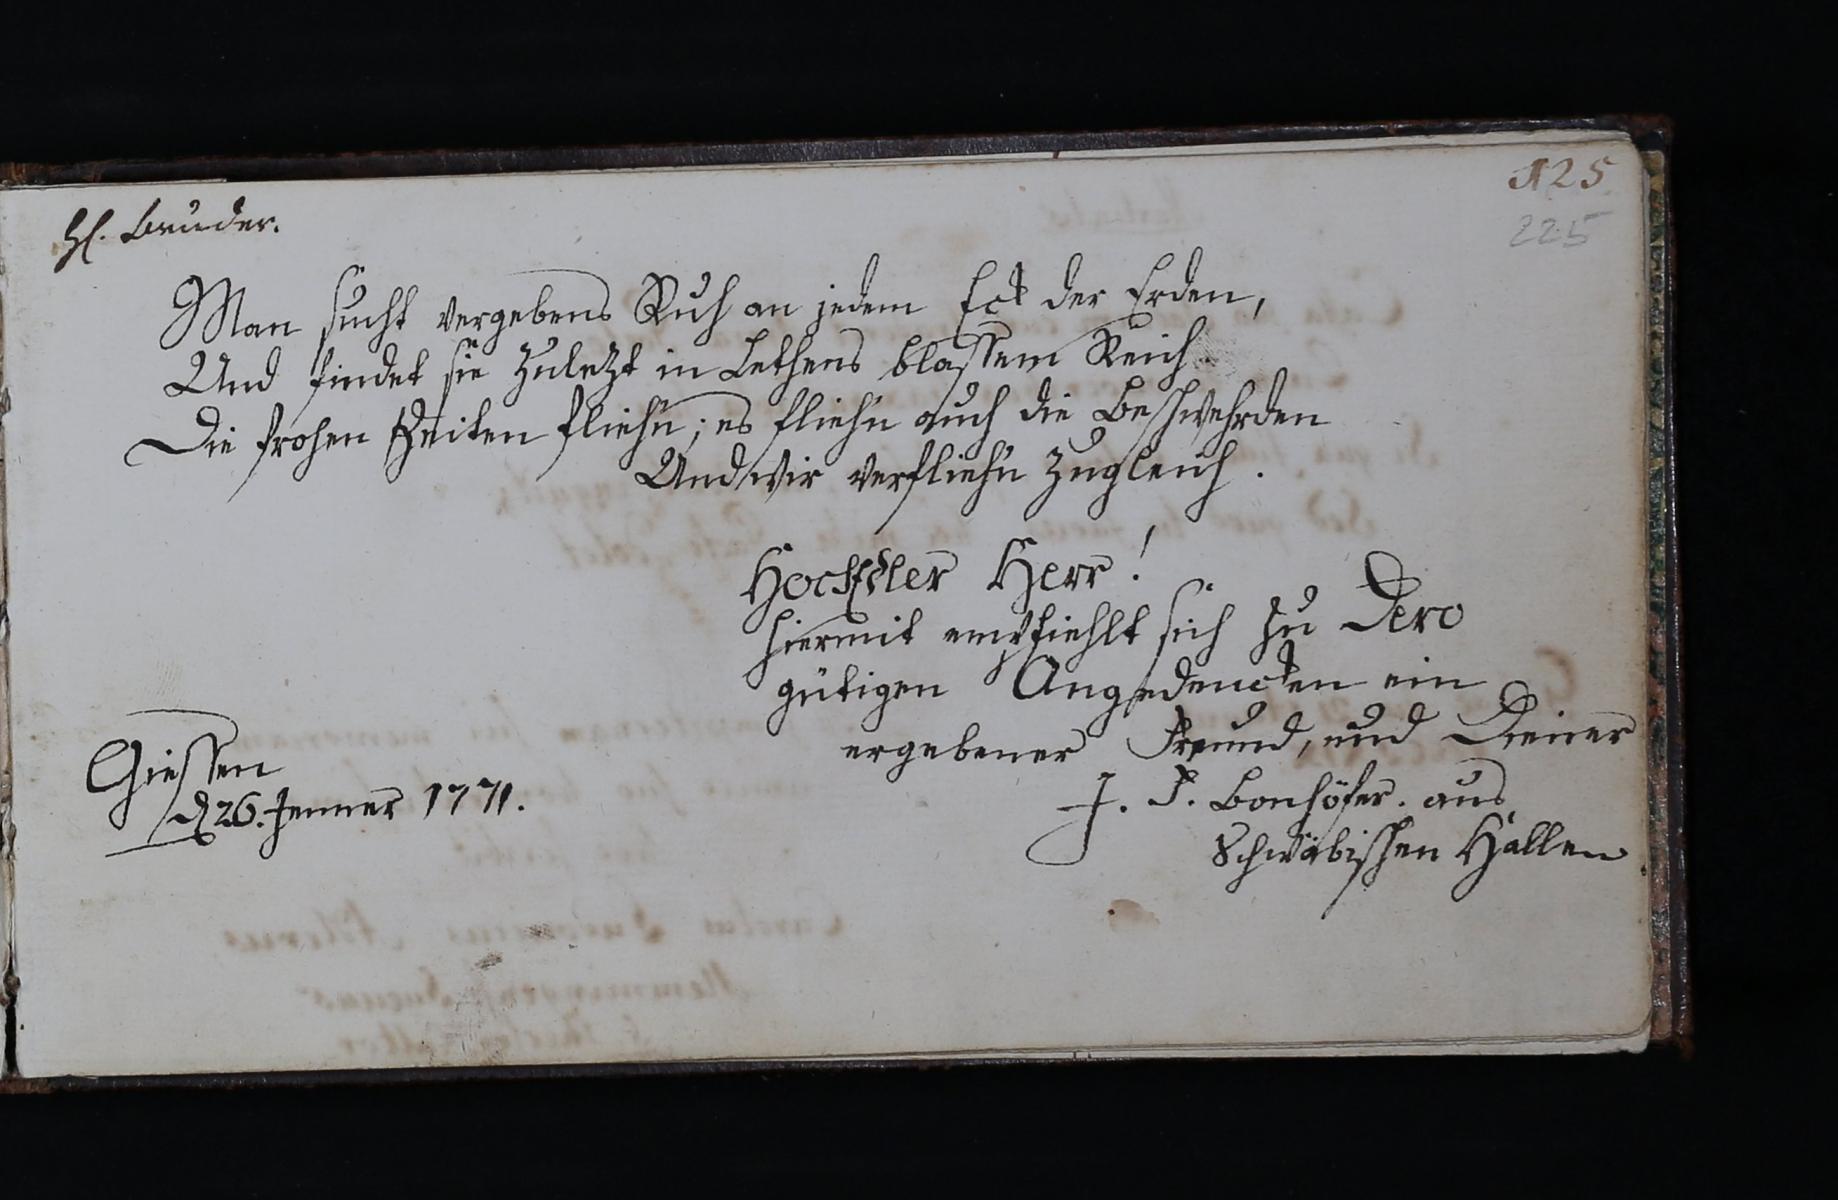 125
225
Hl. Bruder.
Man sucht vergebens Ruh an jedem Eck der Erden,
Und findet sie zulezt in Lethens blassem Reich.
Die frohen Zeiten flieh'n; es flieh'n auch die Beschwehrden
Und wir verflieh'n zugleich.
HochEdler Herr!
hiermit empfiehlt sich zu Dero
gütigen Angedencken ein
ergebener Freund, und Diener
J. F. Bonhöfer. aus
Schwäbischen Hallen
Giessen
d 26. Jenner 1771.